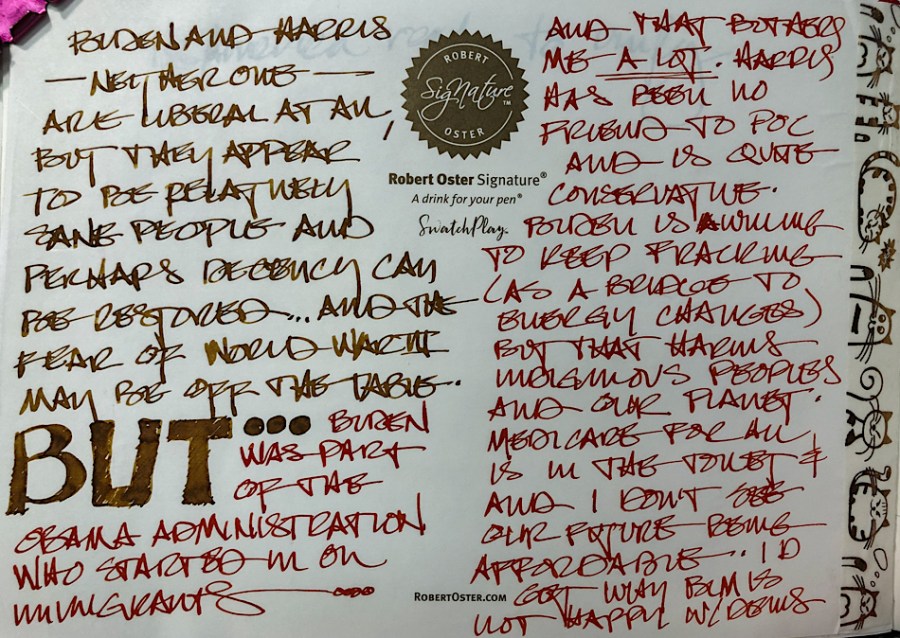 BIDEN AND HARRIS
— NEITHER ONE —
ARE LIBERAL AT ALL,
BUT THEY APPEAR
TO BE RELATIVELY
SANE PEOPLE AND
PERHAPS DECENCY CAN
BE RESTORED... AND THE
FEAR OF WORLD WAR III
MAY BE OFF THE TABLE.
BUT...
BIDEN
WAS PART
OF THE
OBAMA ADMINISTRATION
WHO STARTED IN ON
IMMIGRANTS
ROBERT
SigNature™
OSTER
Robert Oster Signature®
A drink for your pen®
SwatchPlay.
AND THAT BOTHERS
ME A LOT. HARRIS
HAS BEEN NO
FRIEND TO POC
AND IS QUITE
CONSERVATIVE.
BIDEN IS WILLING
TO KEEP FRACKING
(AS A BRIDGE TO
ENERGY CHANGES)
BUT THAT HARMS
INDIGINOUS PEOPLES
AND OUR PLANET.
MEDICARE FOR ALL
IS IN THE TOILET &
AND I DON'T SEE
OUR FUTURE BEING
AFFORDABLE.. I D
GET WHY BLM IS
NOT HAPPY W/DEMS
ROBERTOSTER.COM